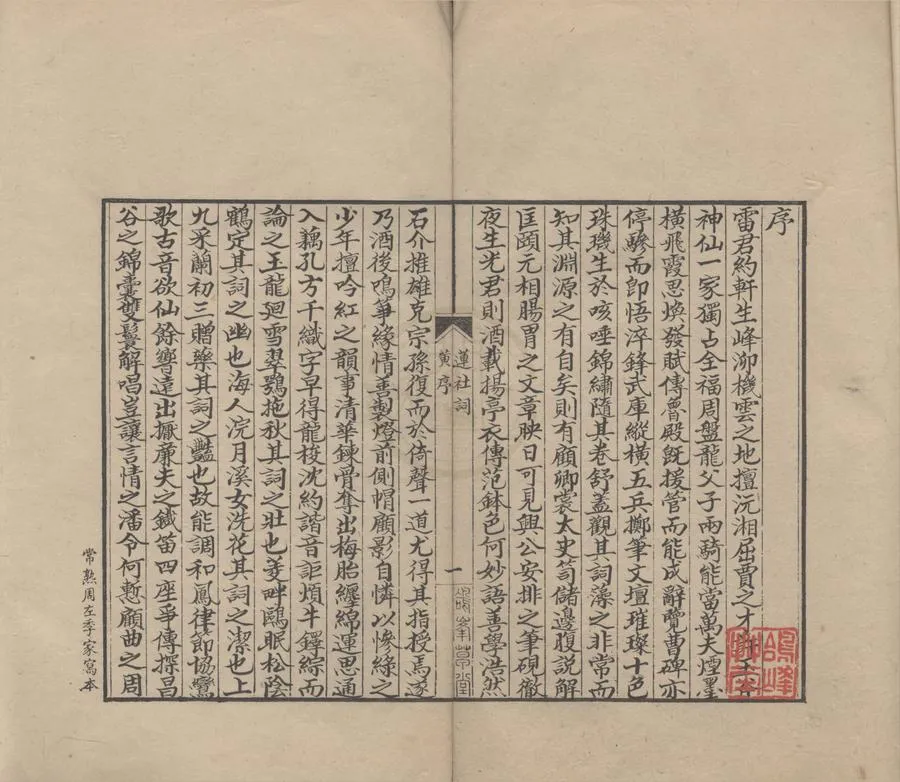 序
雷君約軒生峰泖機雲之地擅沅湘屈賈之才
神仙一家獨占全福周盤龍父子兩騎能當萬夫煙墨
橫飛霞思煥發賦傳魯殿旣援管而能成辭覽曹碑亦
停驂而卽悟淬鋒武庫縱橫五兵擲筆文壇璀璨十色
珠璣生於咳唾錦繡隨其卷舒蓋觀其詞藻之非常而
知其淵源之有自矣則有顧卿裳太史笥儲邊腹說解
匡頤元相腸胃之文章映日可見與公安排之筆硯徹
夜生光君則酒載揚亭衣傳范鉢色何妙語善學浩然
蓮社詞
黃序
一
鴿峯草堂
石介推雄克宗孫復而於倚聲一道尤得其指授焉遂
乃酒後鳴箏緣情善製燈前側帽顧影自憐以慘綠之
少年擅吟紅之韻事清華鍊骨奪出梅胎纏綿運思通
入藕孔方千織字早得龍梭沈約諧音詎煩牛鐸綜而
論之玉龍迴雪翠鴉拖秋其詞之壯也菱畔鷗眠松陰
鶴定其詞之幽也海人浣月溪女洗花其詞之潔也上
九采蘭初三贈藥其詞之豔也故能調和鳳律節協鸞
歌古音欲仙餘響遠出擫廉夫之鐵笛四座爭傳探昌
谷之錦囊雙鬟解唱豈讓言情之潘令何慙顧曲之周
常熟周左季家寫本